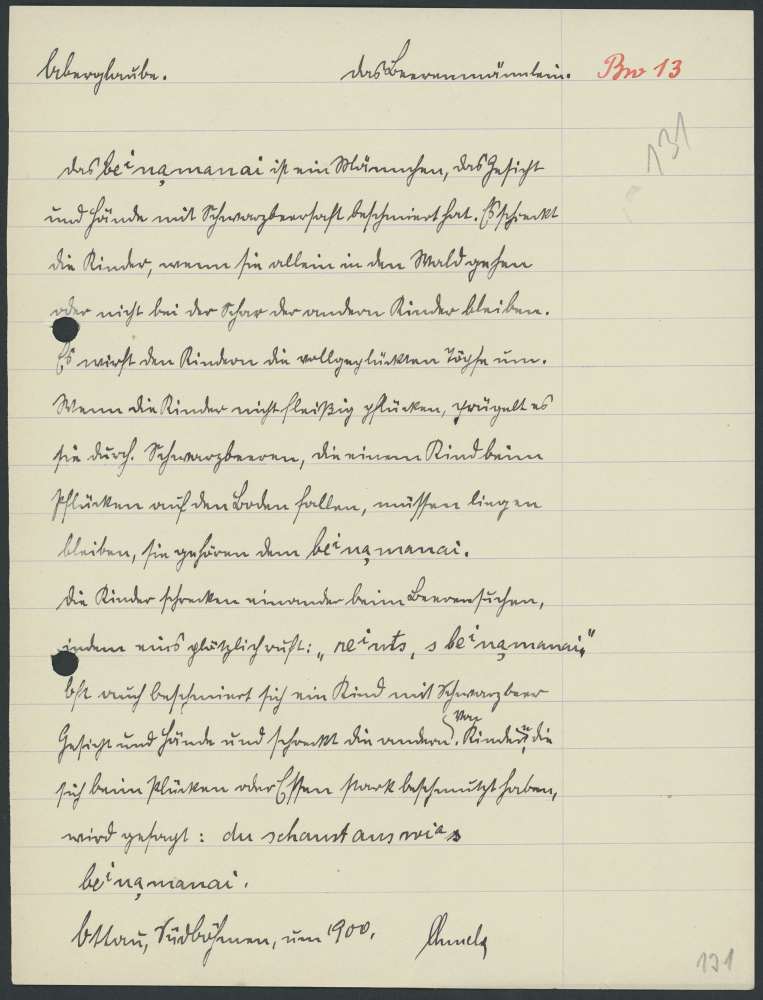 Aberglaube. Das Beerenmännlein. Bw 13
131
Das beⁱnạmanai ist ein Männchen, das Gesicht
und Hände mit Schwarzbeersaft beschmiert hat. Es schreckt
die Kinder, wenn sie allein in den Wald gehen
oder nicht bei der Schar der andern Kinder bleiben.
Es wirft den Kindern die vollgepflückten Töpfe um.
Wenn die Kinder nicht fleißig pflücken, prügelt es
sie durch. Schwarzbeeren, die einem Kind beim
Pflücken auf den Boden fallen, müssen liegen
bleiben, sie gehören dem beⁱnạmanai.
Die Kinder schrecken einander beim Beerensuchen,
indem eins plötzlich ruft: „reⁱnts, s beⁱnạmanai,"
Oft auch beschmiert sich ein Kind mit Schwarzbeer
Gesicht und Hände und schreckt die andern. Von Kindern, die
sich beim Pflücken oder Essen stark beschmutzt haben,
wird gesagt: du schaust aus wiᵃ s
beⁱnạmanai.
Ottau, Südböhmen, um 1900.
131